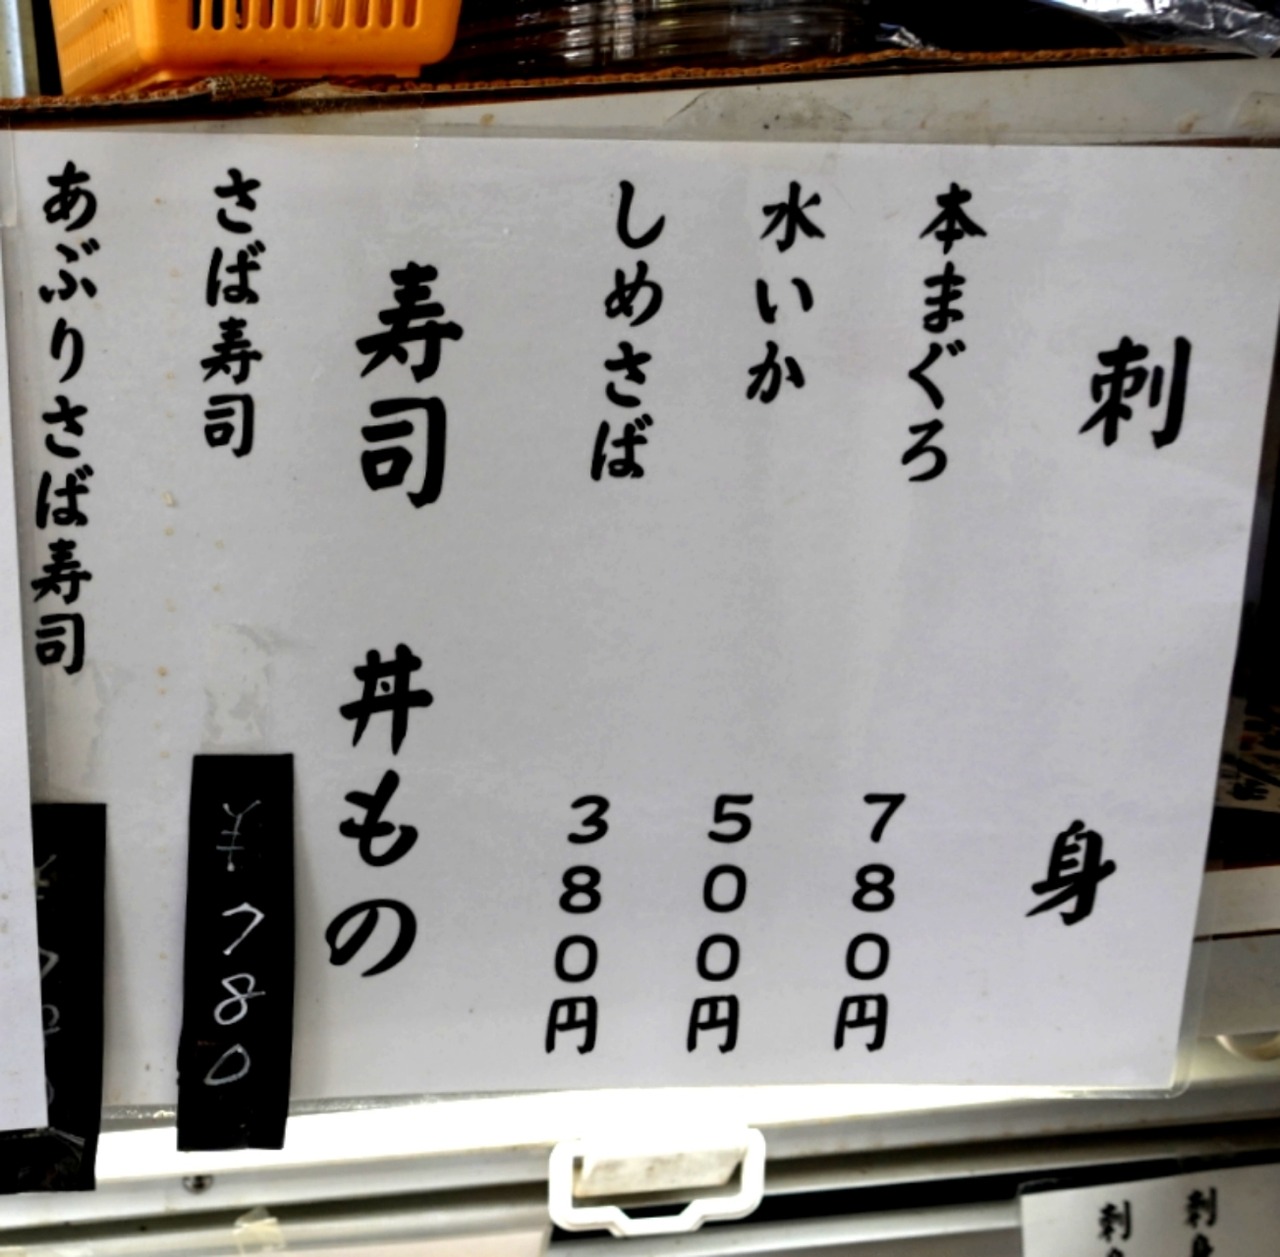 刺身
本まぐろ 780円
水いか 500円
しめさば 380円
寿司 丼もの
さば寿司 ¥780
あぶりさば寿司
刺身
刺身